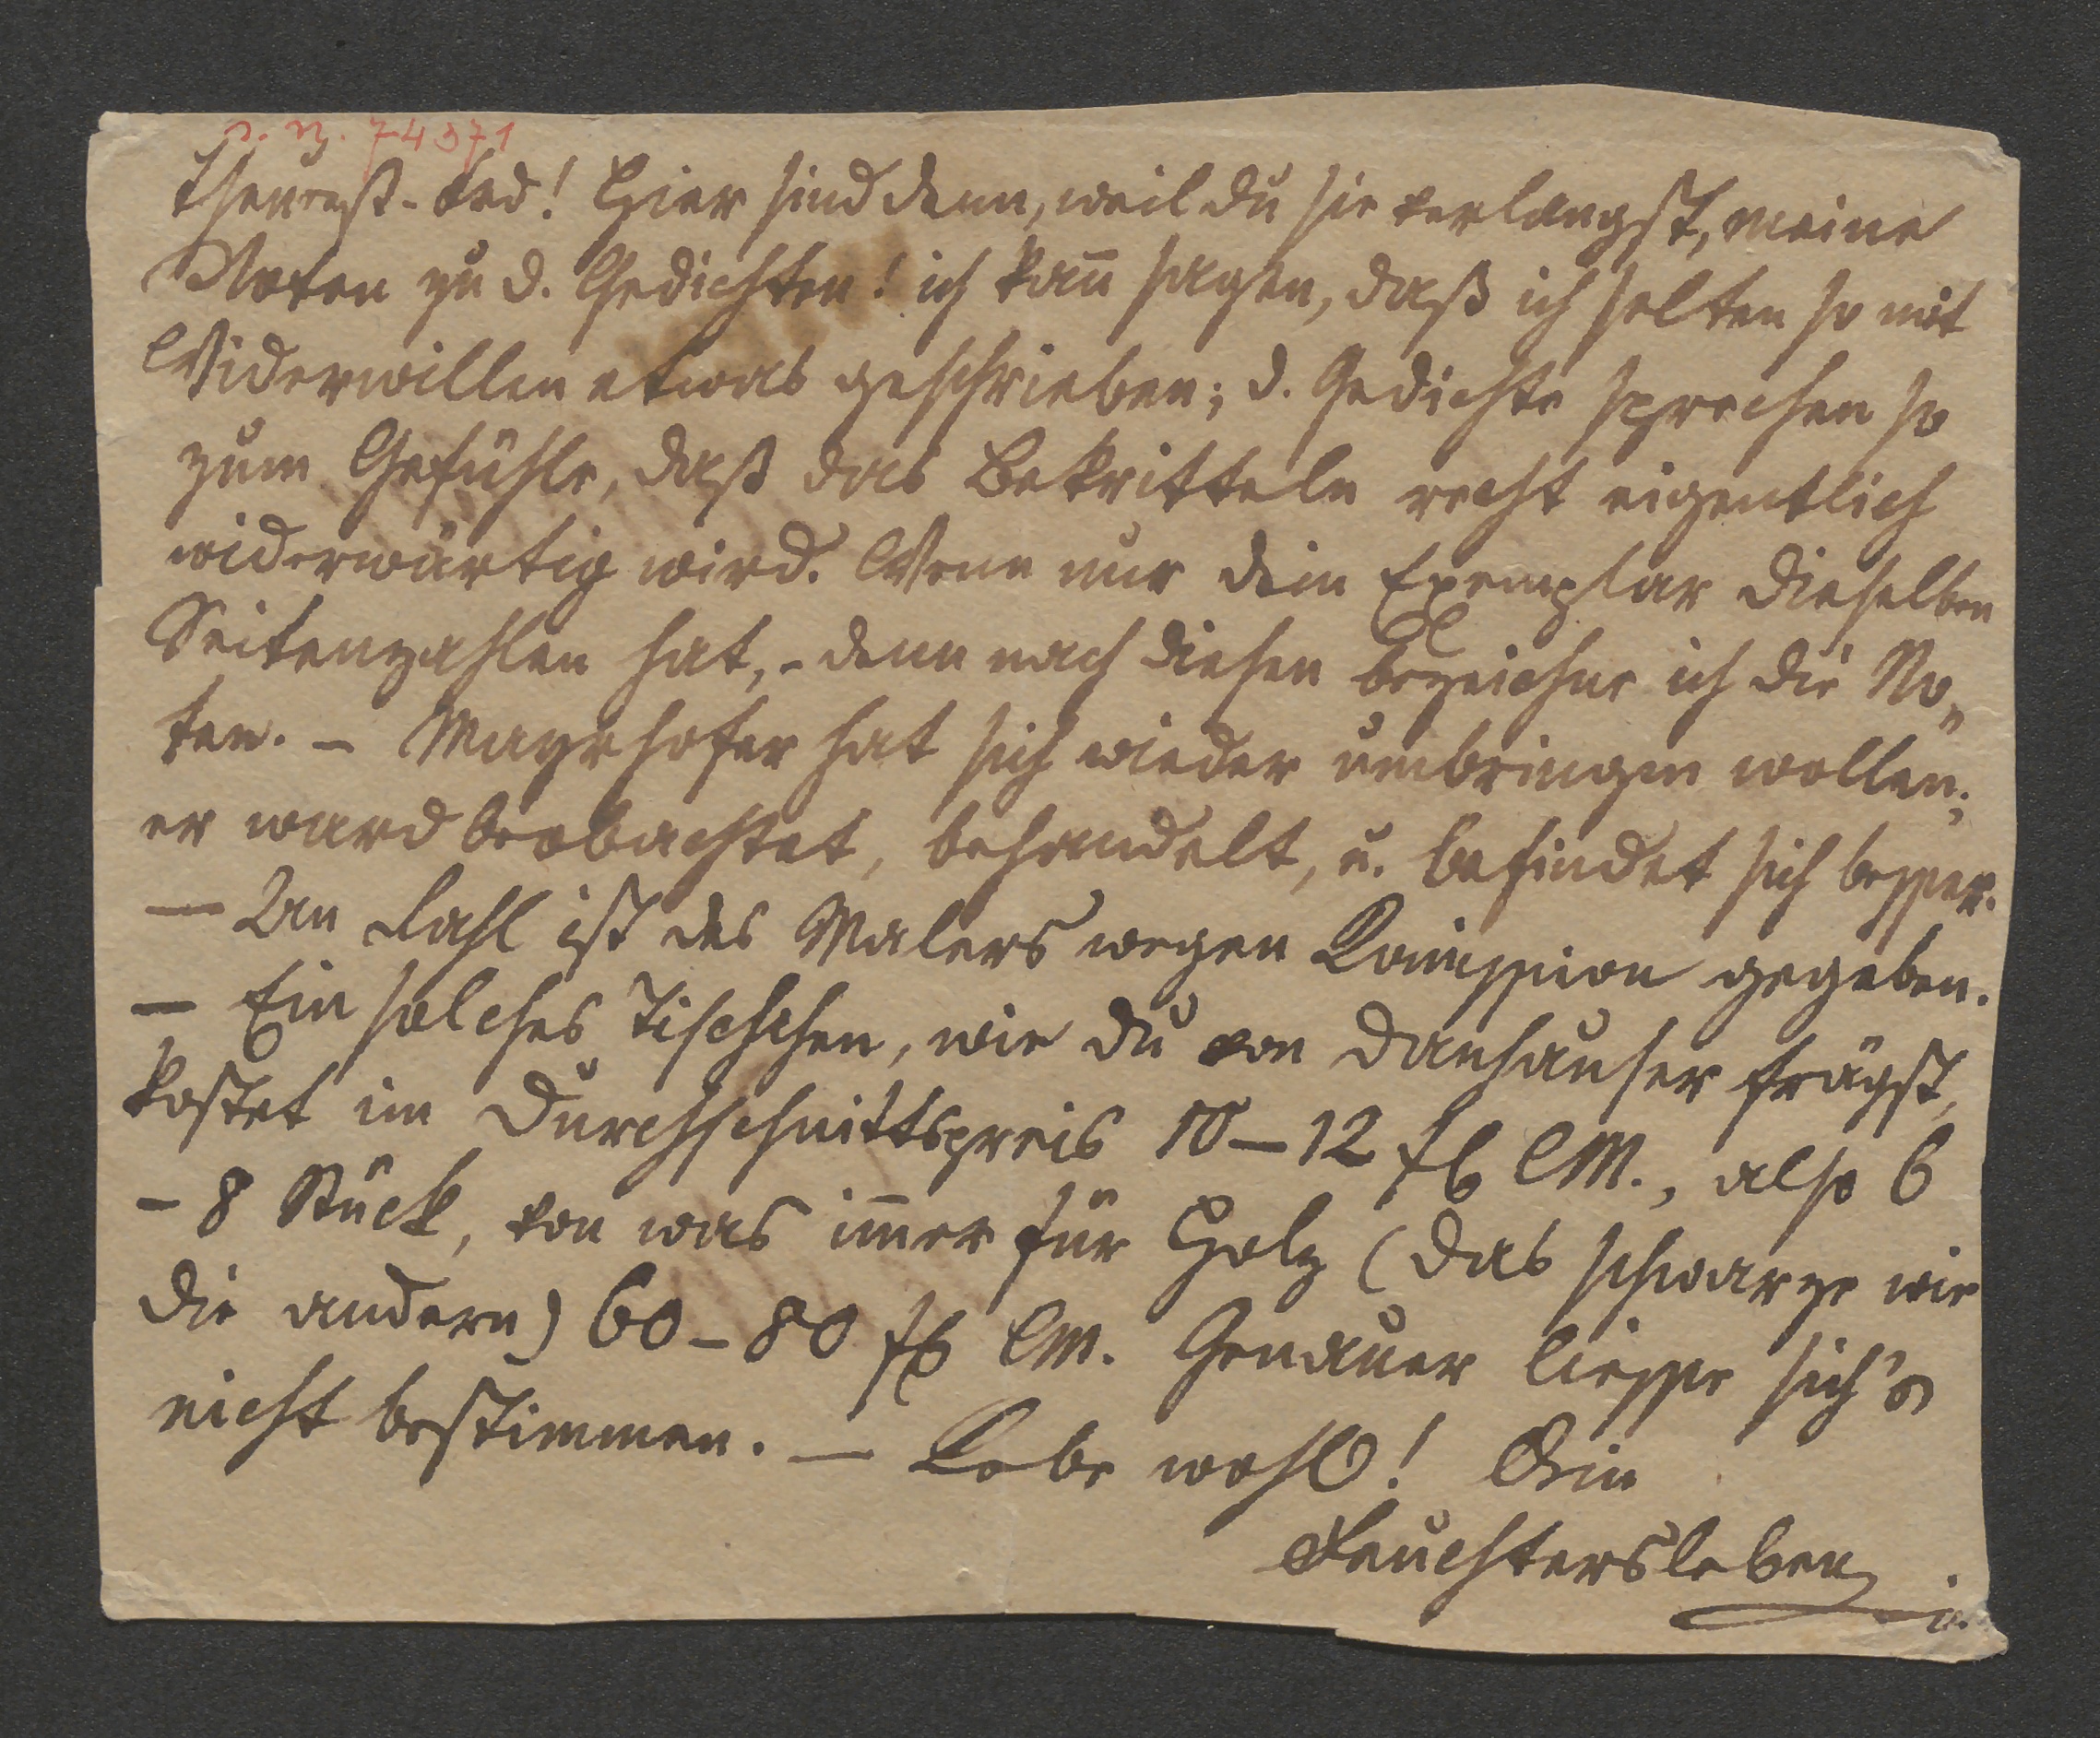 s. n. 74371
Theurest. Frd! Hier sind denn, weil du sie verlangst, meine
Noten zu d. Gedichten! ich kan̅ sagen, daß ich selten so mit
Widerwillen etwas geschrieben; d. Gedichte sprechen so
zum Gefühle, daß das Bekritteln recht eigentlich
widerwärtig wird. Wenn nur dein Exemplar dieselben
Seitenzahlen hat, - denn nach diesen bezeichne ich die No„
ten. – Mayrhofer hat sich wieder umbringen wollen;
er ward beobachtet, behandelt, u. befindet sich besser.
— An Rahl ist des Malers wegen Kom̅ission gegeben.
— Ein solches Tischchen, wie du von Danhauser frägst,
kostet im Durchschnittspreis 10–12 fl CM., also 6
– 8 Stück, von was im̅er für Holz (das schwarze wie
die andern) 60–80 fl CM. Genauer liesse sich's
nicht bestimmen. — Lebe wohl! Dein
Feuchtersleben